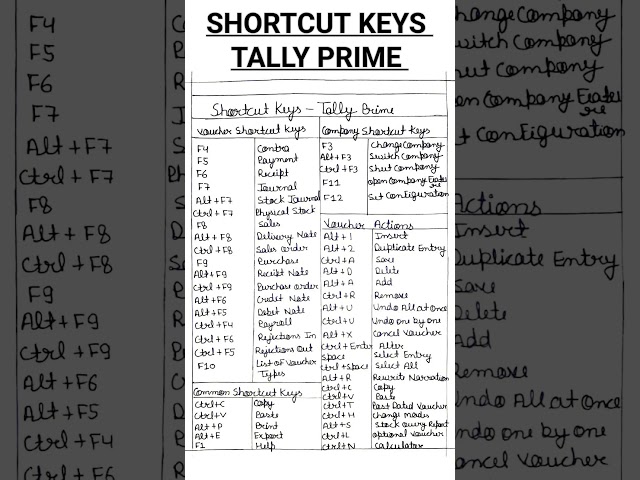 SHORTCUT KEYS
TALLY PRIME
Shortcut Keys - Tally Prime
Voucher Shortcut Keys
F4 Contra
F5 Payment
F6 Receipt
F7 Journal
Alt + F7 Stock Journal
Ctrl + F7 Physical Stock
F8 Sales
Alt + F8 Delivery Note
Ctrl + F8 Sales order
F9 Purchase
Alt + F9 Receipt Note
Ctrl + F9 Purchase order
Alt + F6 Credit Note
Alt + F5 Debit Note
Ctrl + F4 Payroll
Ctrl + F6 Rejections In
Ctrl + F5 Rejections Out
F10 List of Voucher
Types
Common Shortcut Keys
Ctrl + C Copy
Ctrl + V Paste
Alt + P Print
Alt + E Export
F1 Help
Company Shortcut Keys
F3 Change Company
Alt + F3 Switch Company
Ctrl + F3 Shut Company
F11 open Company
F12 Set Configuration
Voucher Actions
Alt + I Insert
Alt + 2 Duplicate Entry
Ctrl + A Save
Alt + D Delete
Alt + A Add
Ctrl + R Remove
Alt + U Undo All at once
Ctrl + U Undo one by one
Alt + X Cancel Voucher
Ctrl + Enter Alter
Space Select Entry
Ctrl + Space Select All
Alt + R Rewrite Narration
Ctrl + C Copy
Ctrl + V Paste
Ctrl + T Post Dated Voucher
Ctrl + H Change modes
Alt + S Stock Query Report
Ctrl + L optional Voucher
Ctrl + N Calculator
F4
F5
F6
F7
Alt + F7
Ctrl + F7
F8
Alt + F8
Ctrl + F8
F9
Alt + F9
Ctrl + F9
Alt + F6
Alt + F5
Ctrl + F4
Ctrl + F6
Change Company
Switch Company
Shut Company
Company
Configuration
Actions
Insert
Duplicate Entry
Save
Delete
Add
Remove
Undo All at once
Undo one by one
Cancel Voucher